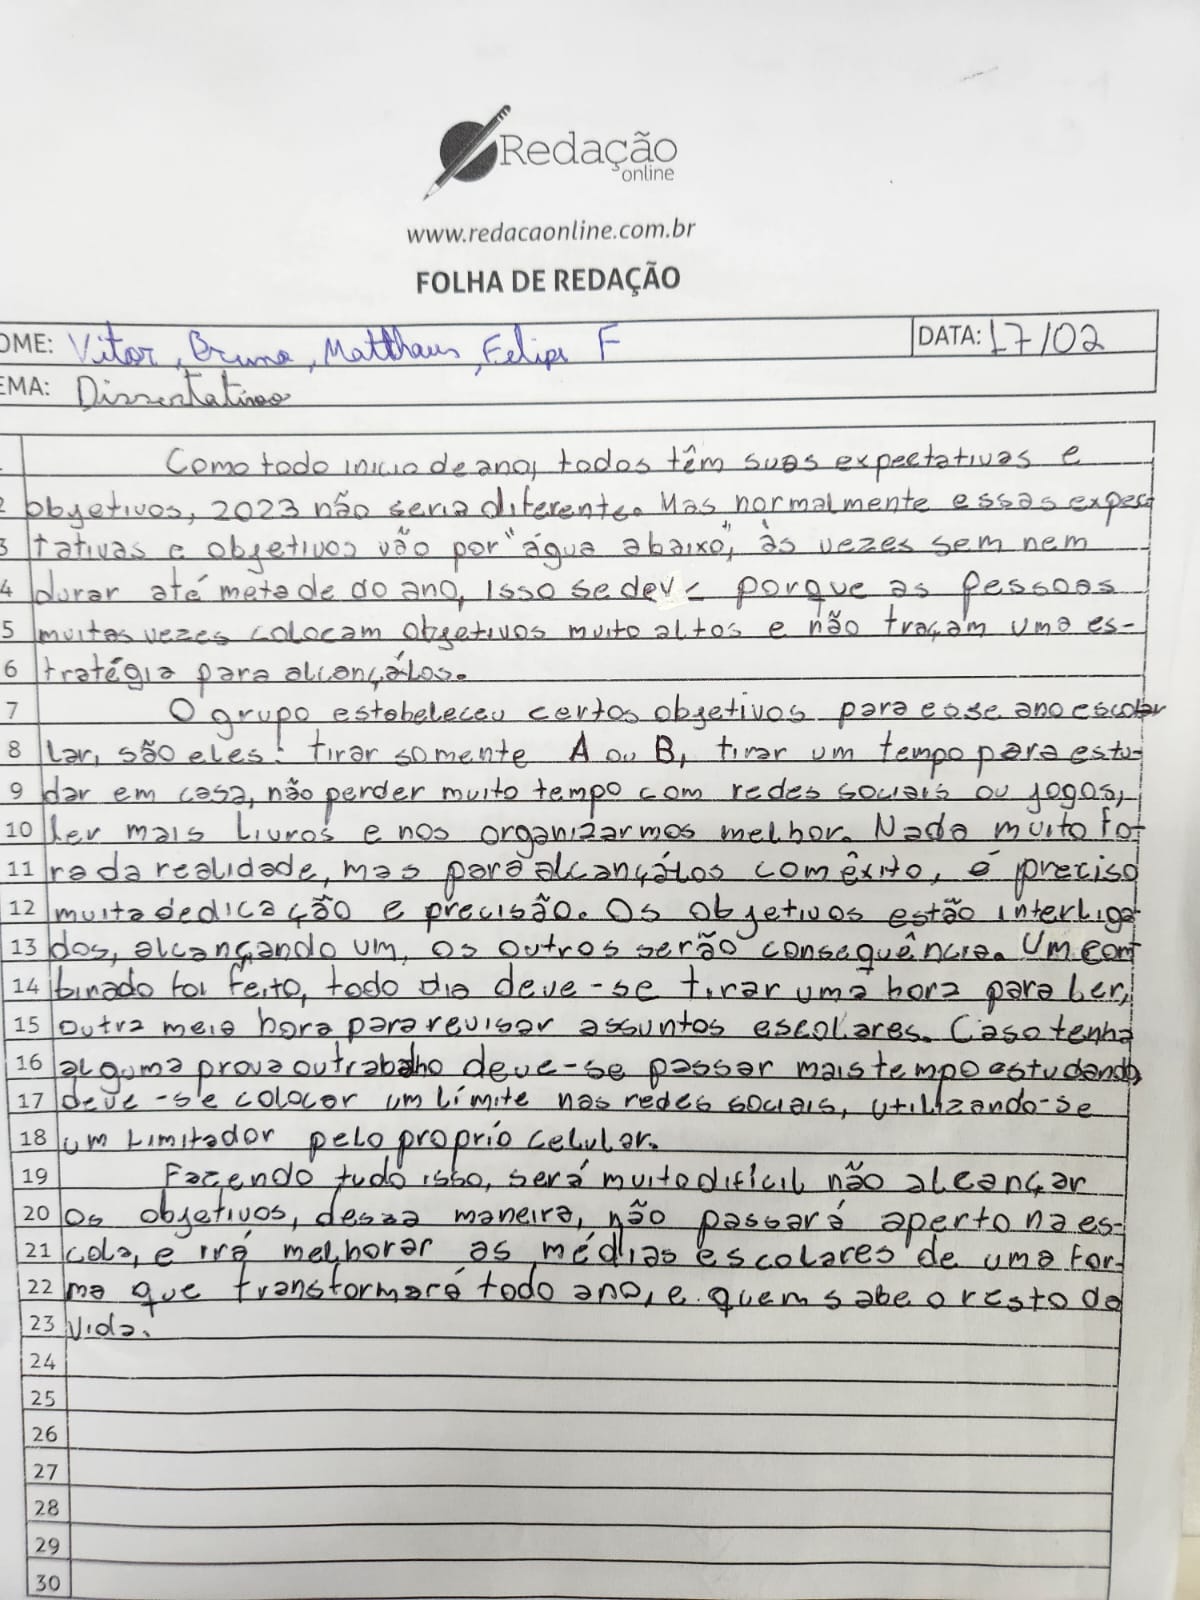 Redação
online
www.redacaonline.com.br
FOLHA DE REDAÇÃO
OME: Vitor, Bruno, Matthaus, Felipe F
DATA: 17/02
EMA: Dissertativo
Como todo inicio de ano, todos têm suas expectativas e
2 objetivos, 2023 não seria diferente. Mas normalmente essas expec
3 tativas e objetivos vão por "água abaixo", às vezes sem nem
4 durar até metade do ano, Isso se deve porque as pessoas
5 muitas vezes colocam objetivos muito altos e não traçam uma es-
6 tratégia para alcançálos.
7 O grupo estabeleceu certos objetivos para esse ano escolar
8 lar, são eles: tirar somente A ou B, tirar um tempo para estu-
9 dar em casa, não perder muito tempo com redes sociais ou jogos,
10 ler mais livros e nos organizarmos melhor. Nada muito fo-
11 ra da realidade, mas para alcançálos com êxito, é preciso
12 muita dedicação e precisão. Os objetivos estão interliga-
13 dos, alcançando um, os outros serão consequência. Um com
14 binado foi feito, todo dia deve-se tirar uma hora para ler,
15 outra meia hora para revisar assuntos escolares. Caso tenha
16 alguma prova ou trabalho deve-se passar mais tempo estudando,
17 deve-se colocar um límite nas redes sociais, utilizando-se
18 um limitador pelo proprio celular.
19 Fazendo tudo isso, será muito difícil não alcançar
20 os objetivos, dessa maneira, não passará aperto na es-
21 cola, e irá melhorar as médias escolares de uma for-
22 ma que transformará todo ano, e quem sabe o resto da
23 vida.
24
25
26
27
28
29
30